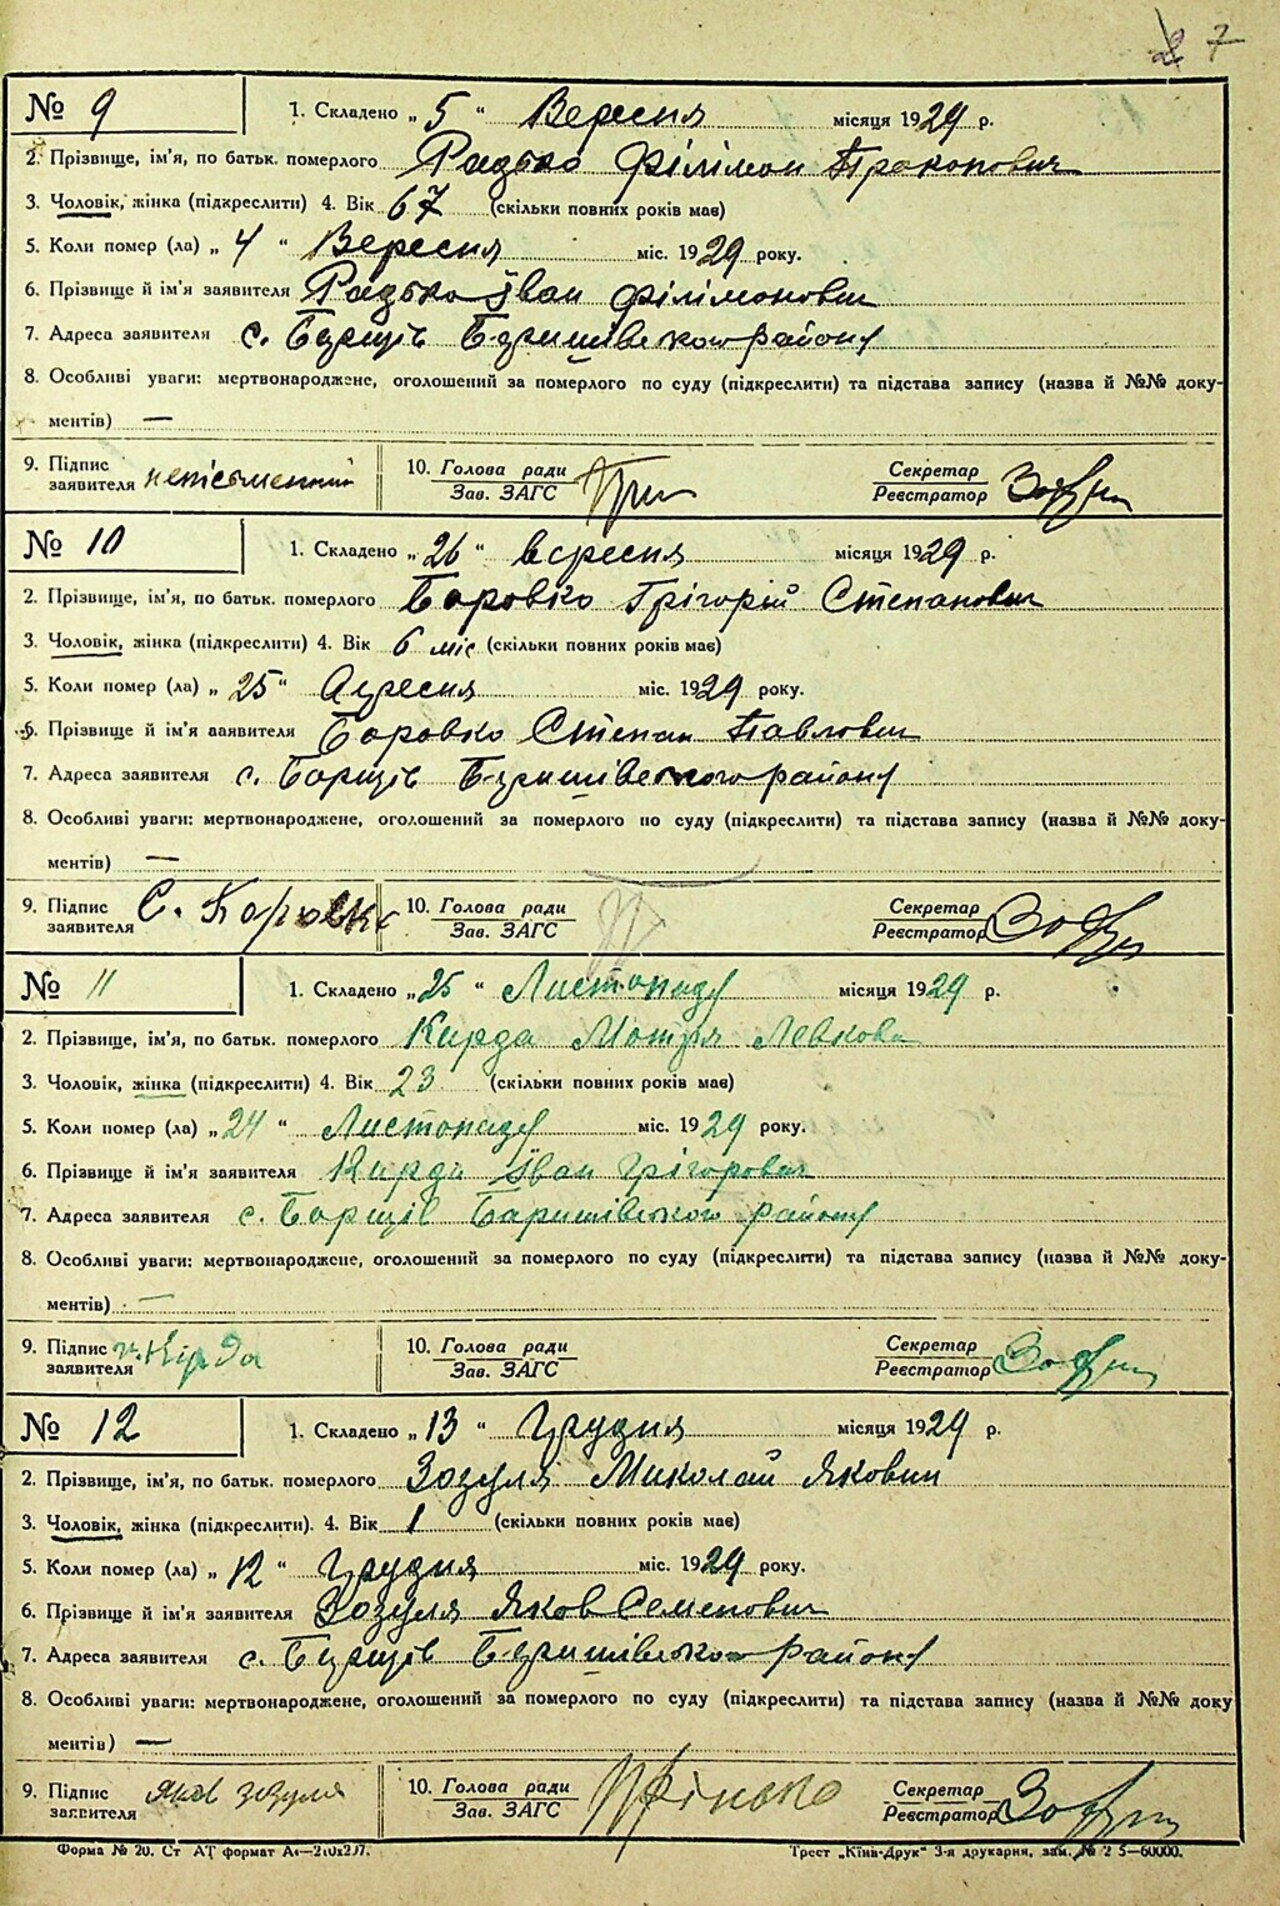 7
№ 9 1. Складено „5“ Вересня місяця 1929 р.
2. Прізвище, ім'я, по батьк. померлого Радько Філімон Прокопович
3. Чоловік, жінка (підкреслити) 4. Вік 67 (скільки повних років має)
5. Коли помер (ла) „4“ Вересня міс. 1929 року.
6. Прізвище й ім'я заявителя Радько Іван Філімонович
7. Адреса заявителя с. Борщів Баришівського району
8. Особливі уваги: мертвонароджене, оголошений за померлого по суду (підкреслити) та підстава запису (назва й №№ доку-
ментів) —
9. Підпис заявителя неписьменний 10. Голова ради Зав. ЗАГС Секретар Реєстратор
№ 10 1. Складено „26“ вересня місяця 1929 р.
2. Прізвище, ім'я, по батьк. померлого Боровко Грігорій Степанович
3. Чоловік, жінка (підкреслити) 4. Вік 6 міс (скільки повних років має)
5. Коли помер (ла) „25“ міс. 1929 року.
6. Прізвище й ім'я заявителя Боровко Степан Павлович
7. Адреса заявителя с. Борщів Баришівського району
8. Особливі уваги: мертвонароджене, оголошений за померлого по суду (підкреслити) та підстава запису (назва й №№ доку-
ментів) —
9. Підпис заявителя С. 10. Голова ради Зав. ЗАГС Секретар Реєстратор
№ 11 1. Складено „25“ Листопаду місяця 1929 р.
2. Прізвище, ім'я, по батьк. померлого Кирда Мотря Левкова
3. Чоловік, жінка (підкреслити) 4. Вік 23 (скільки повних років має)
5. Коли помер (ла) „24“ Листопаду міс. 1929 року.
6. Прізвище й ім'я заявителя Кирда Іван Грігорович
7. Адреса заявителя с. Борщів Баришівського району
8. Особливі уваги: мертвонароджене, оголошений за померлого по суду (підкреслити) та підстава запису (назва й №№ доку-
ментів) —
9. Підпис заявителя Кірда 10. Голова ради Зав. ЗАГС Секретар Реєстратор
№ 12 1. Складено „13“ Грудня місяця 1929 р.
2. Прізвище, ім'я, по батьк. померлого Зозуля Миколай Якович
3. Чоловік, жінка (підкреслити). 4. Вік 1 (скільки повних років має)
5. Коли помер (ла) „12“ Грудня міс. 1929 року.
6. Прізвище й ім'я заявителя Зозуля Яков Семенович
7. Адреса заявителя с. Борщів Баришівського району
8. Особливі уваги: мертвонароджене, оголошений за померлого по суду (підкреслити) та підстава запису (назва й №№ доку
ментів) —
9. Підпис заявителя Яков зозуля 10. Голова ради Зав. ЗАГС Секретар Реєстратор
Форма № 20. Ст АТ формат А4—210х297. Трест „Київ-Друк“ 3-я друкарня, зам. №